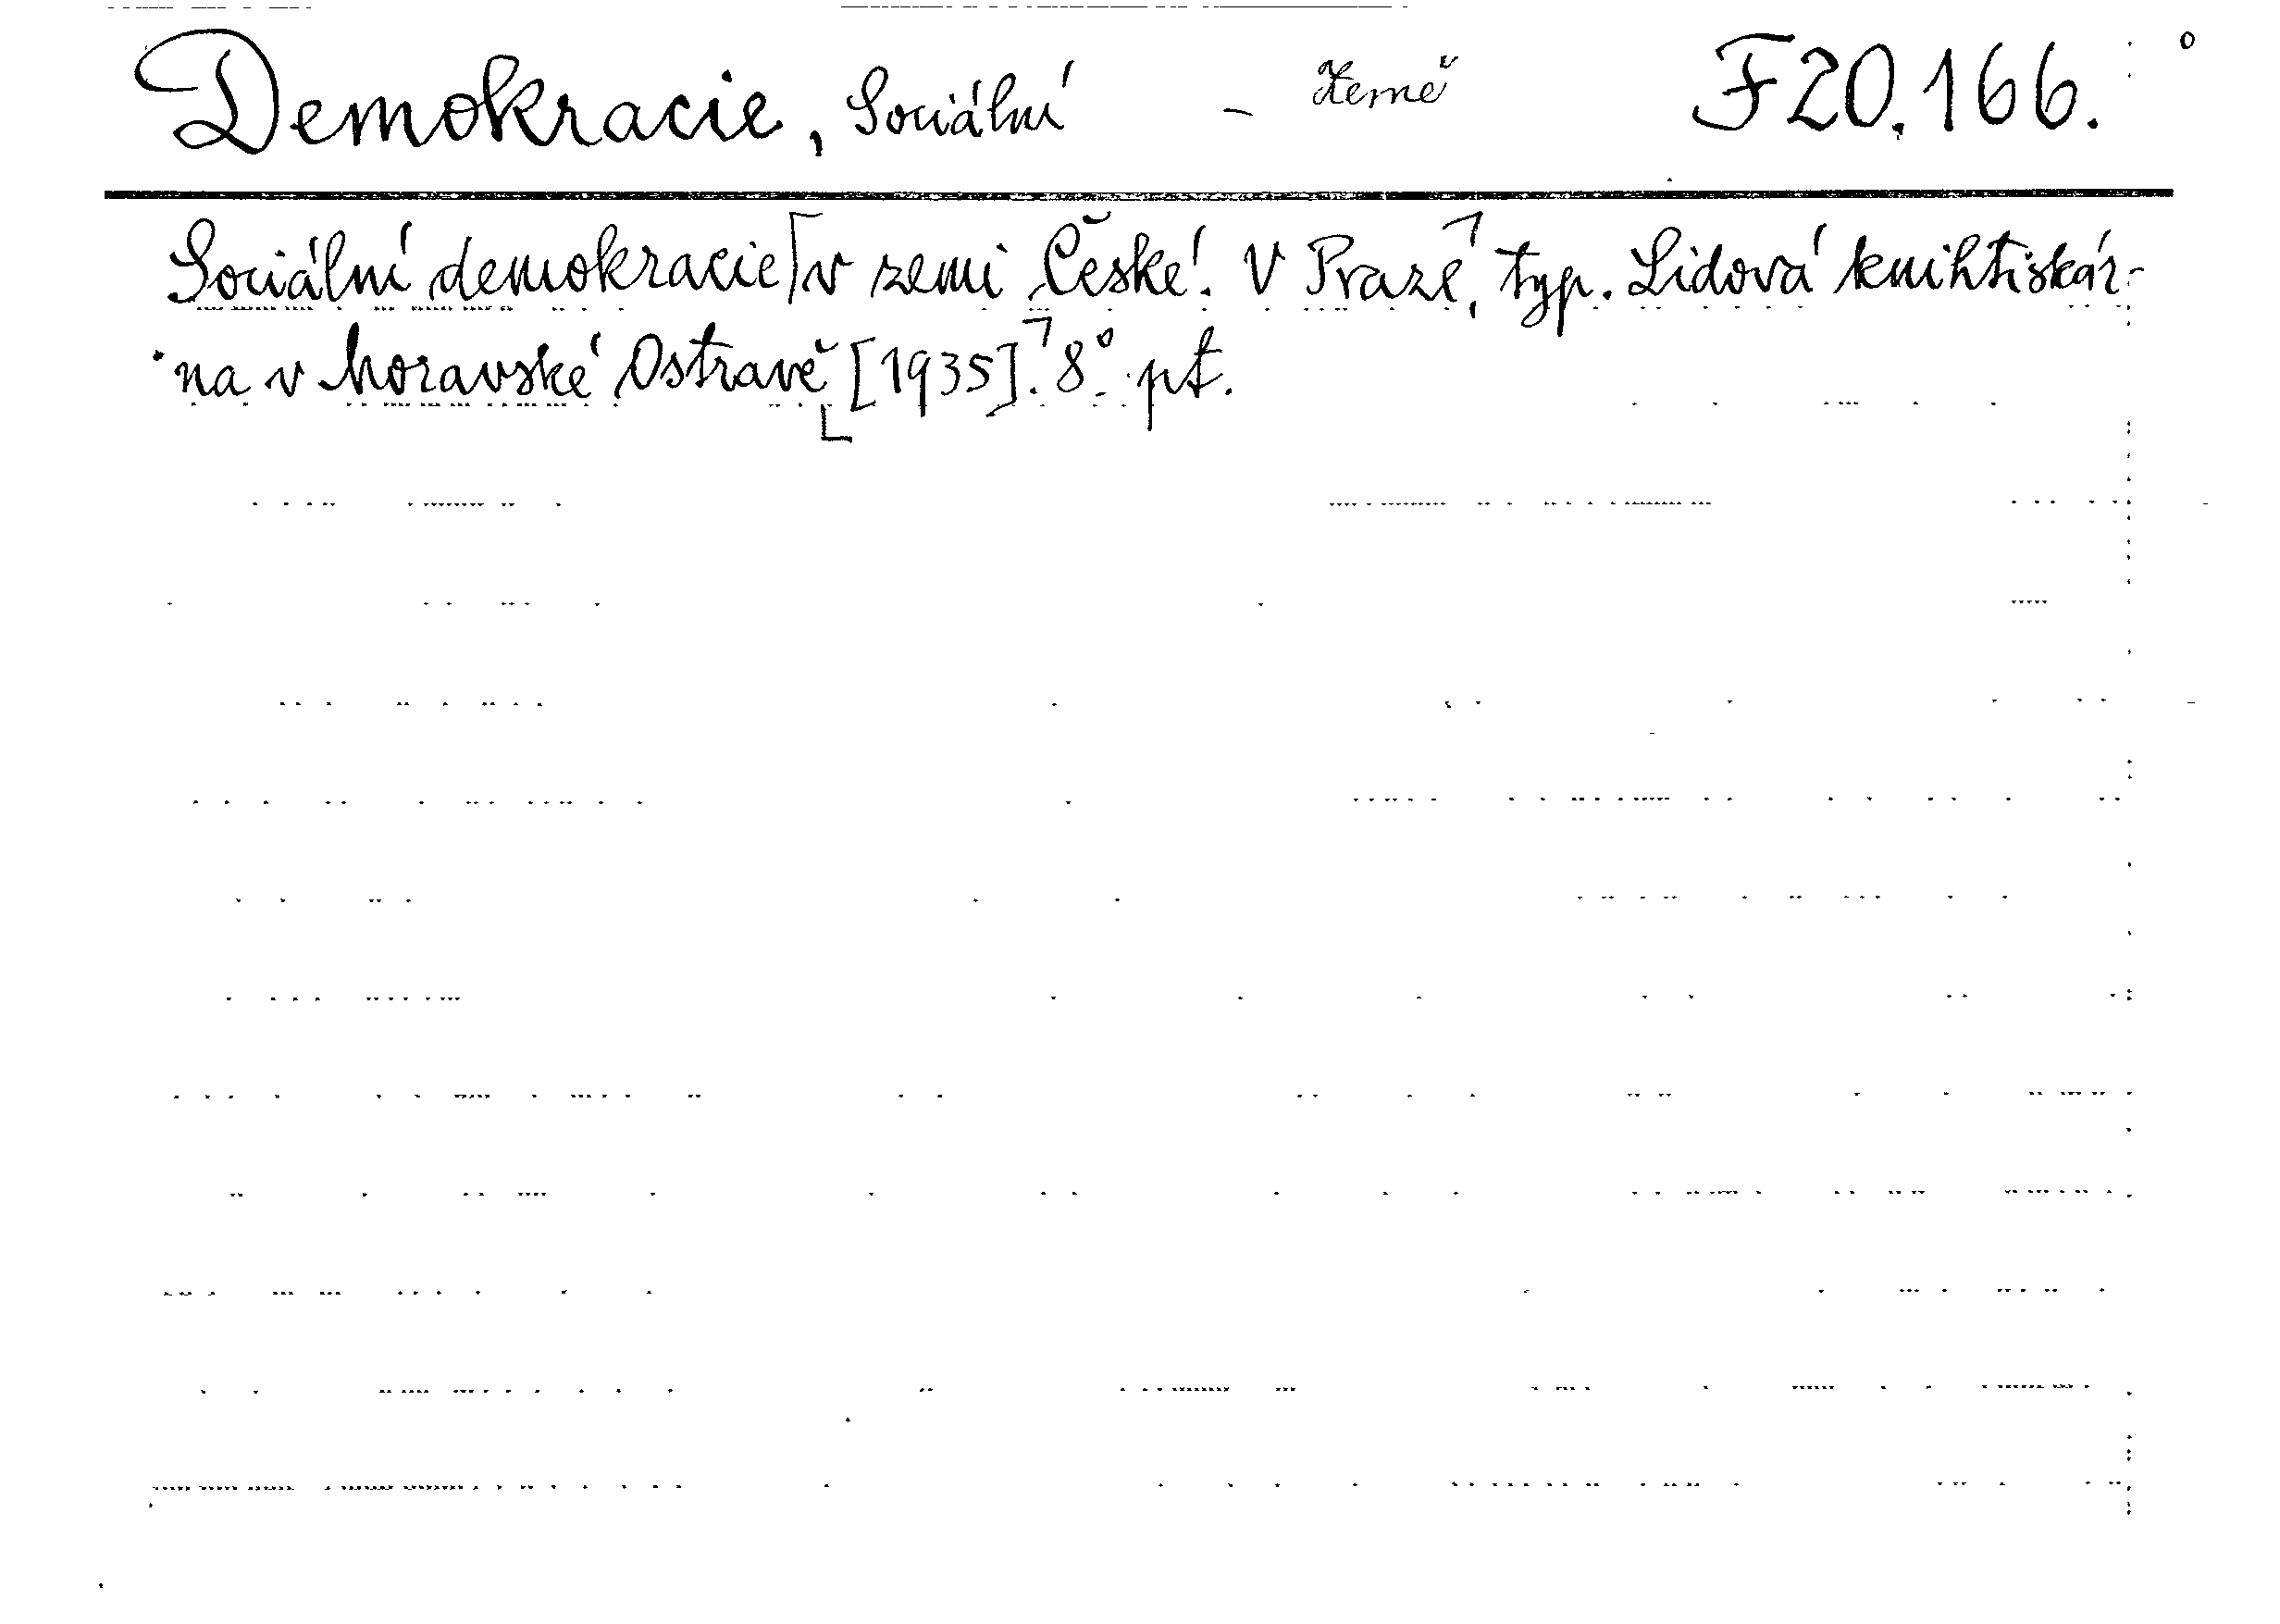 Demokracie, Sociální - Země F 20.166.
Sociální demokracie v zemi České. V Praze, typ. Lidová knihtiskár-
na v Moravské Ostravě [1935]. 8° pt.